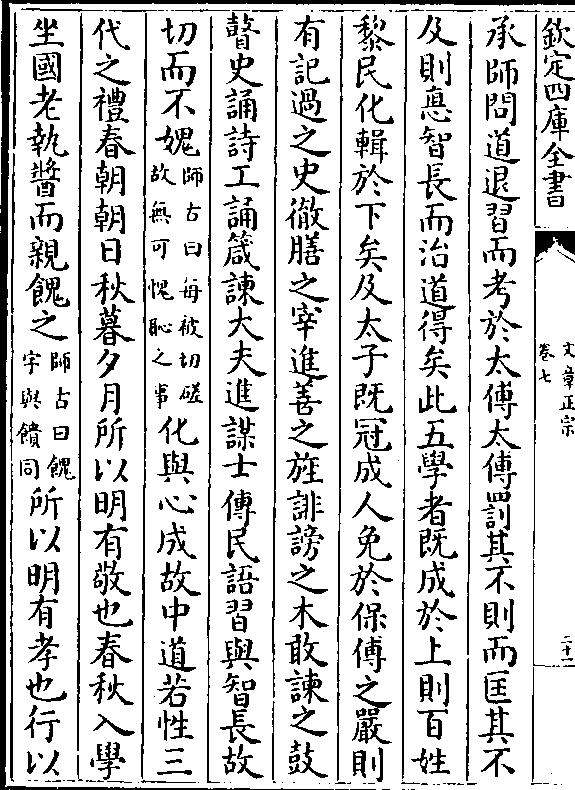 欽定四庫全書
文章正宗
卷七
二十一
承師問道退習而考於太傅太傅罰其不則而匡其不
及則惪智長而治道得矣此五學者既成於上則百姓
黎民化輯於下矣及太子既冠成人免於保傅之嚴則
有記過之史徹膳之宰進善之旌誹謗之木敢諫之鼓
瞽史誦詩工誦箴諫大夫進謀士傳民語習與智長故
切而不媿師古曰每被切磋故無可愧恥之事化與心成故中道若性三
代之禮春朝朝日秋暮夕月所以明有敬也春秋入學
坐國老執醬而親餽之師古曰餽字與饋同所以明有孝也行以